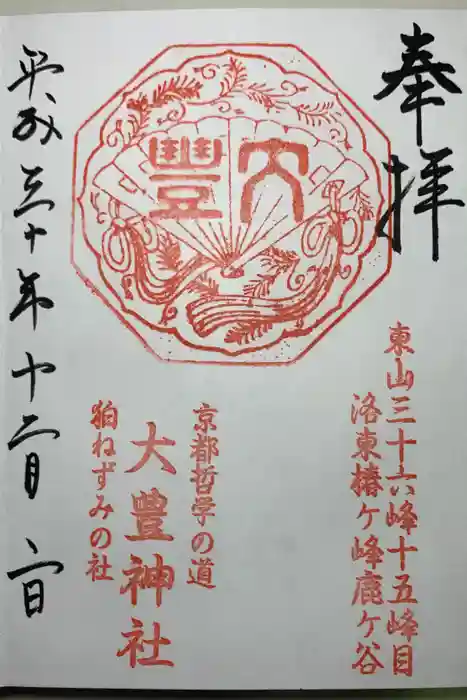 奉拝
東山三十六峰十五峰目
洛東椿ケ峰鹿ケ谷
大豐
京都哲学の道
大豊神社
狛ねずみの社
平成三十年十二月 日